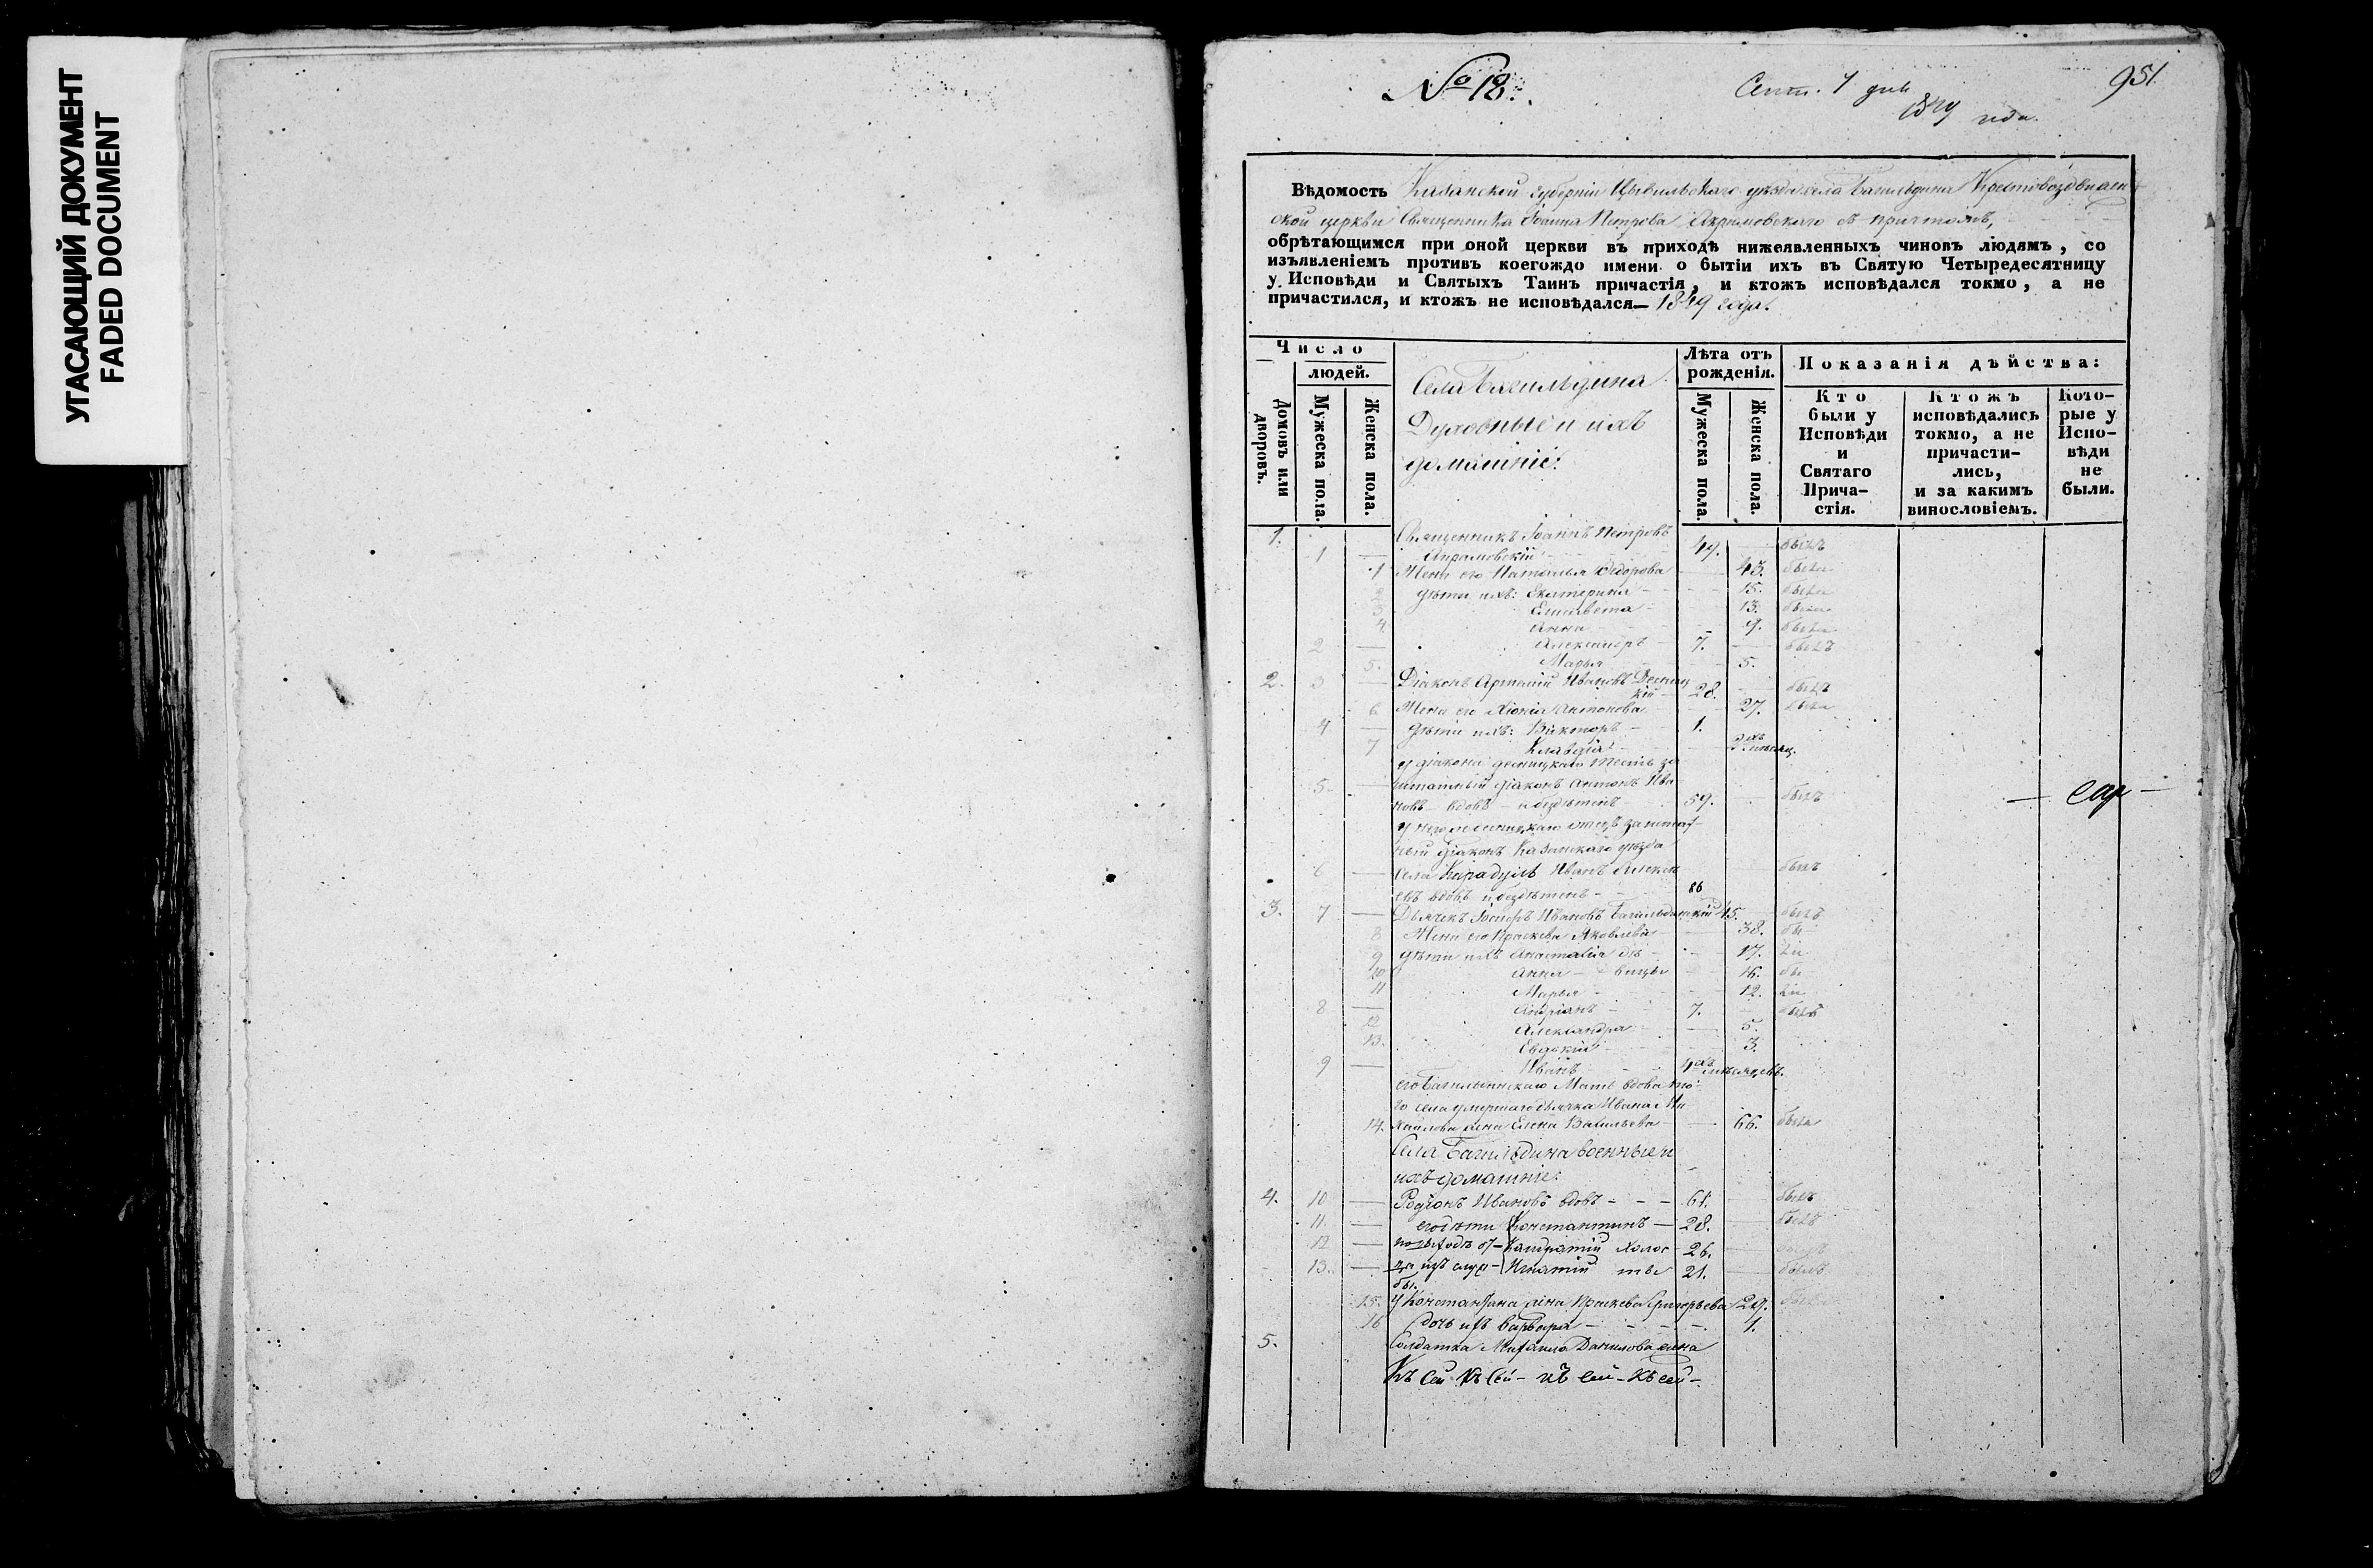 УГАСАЮЩИЙ ДОКУМЕНТ
FADED DOCUMENT
№ 18.
Сент. 7 дня
1849 года.
951.
Вѣдомость Казанской губерніи Цывильскаго уѣзда села Багильдина Крестовоздвижен
ской церкви Священника Іоанна Петрова съ причтомъ,
обрѣтающимся при оной церкви въ приходѣ нижеявленныхъ чиновъ людямъ, со
изъявленіемъ противъ коегождо имени о бытіи ихъ въ Святую Четыредесятницу
у Исповѣди и Святыхъ Таинъ причастія, и ктожъ исповѣдался токмо, а не
причастился, и ктожъ не исповѣдался— 1849 года.
Число
людей.
Домовъ или дворовъ.
Мужеска пола.
Женска пола.
Села Багильдина
Духовные и ихъ
домашніе:
Лѣта отъ
рожденія.
Мужеска пола.
Женска пола.
Показанія дѣйства:
Кто
были у
Исповѣди
и
Святаго
Прича-
стія.
Ктожъ
исповѣдались
токмо, а не
причасти-
лись,
и за какимъ
винословіемъ.
Кото-
рые у
Испо-
вѣди
не
были.
1. Священникъ Іоаннъ Петровъ
1 — 49. — былъ
1 Жена его Наталья Ѳедорова — 43. была
2 дѣти ихъ: Екатерина — 15. была
3 Елисавета — 13. была
4 Анна — 9. была
2 — Александръ — 7. — былъ
5. Марья — 5.
2. 3 — Діаконъ Артемій Ивановъ Десниц
кій — 28. — былъ
6 Жена его Хіонія Антонова — 27. была
4 — дѣти ихъ: Викторъ — 1.
7 Клавдія — 3хъ мѣсяц.
у діакона Десницкаго тесть за
5. — штатный діаконъ Антонъ Ива
новъ — вдовъ — и бездѣтенъ 59. — былъ
отецъ заштат-
ный діаконъ Казанскаго уѣзда
6 — села Иванъ Алексѣ былъ
евъ вдовъ и бездѣтенъ — 86
3. 7 — Дьячекъ Ивановъ Багильдинскій 45. былъ
8 Жена его Праскева Яковлева — 38. бы
9 дѣти ихъ Анастасія дѣ — 17. ла
10 Анна — вицы — 16. бы
11 Марья — 12. ла
8 — Андріанъ — 7. — былъ
12 Александра — 5.
13. Евдокія — 3.
9 — Иванъ — 4хъ мѣсяцевъ.
его Багильдинскаго Мать вдова то-
го села умершаго дьячка Ивана Ми
14. хайлова жена Елена Васильева — 66. была
Села Багильдина военные и
ихъ домашніе:
4. 10 — Родіонъ Ивановъ вдовъ — 61. былъ
11. — его дѣти Константинъ — 28. — былъ
12 — Кандратій холос 26.
13. — Игнатій ты 21. — былъ
15. У Константина жена Праскева Григорьева 29. была
16 дочь ихъ Варвара — 1.
5. Солдатка Михаила Данилова жена
Къ сей къ сей — къ сей — къ сей —